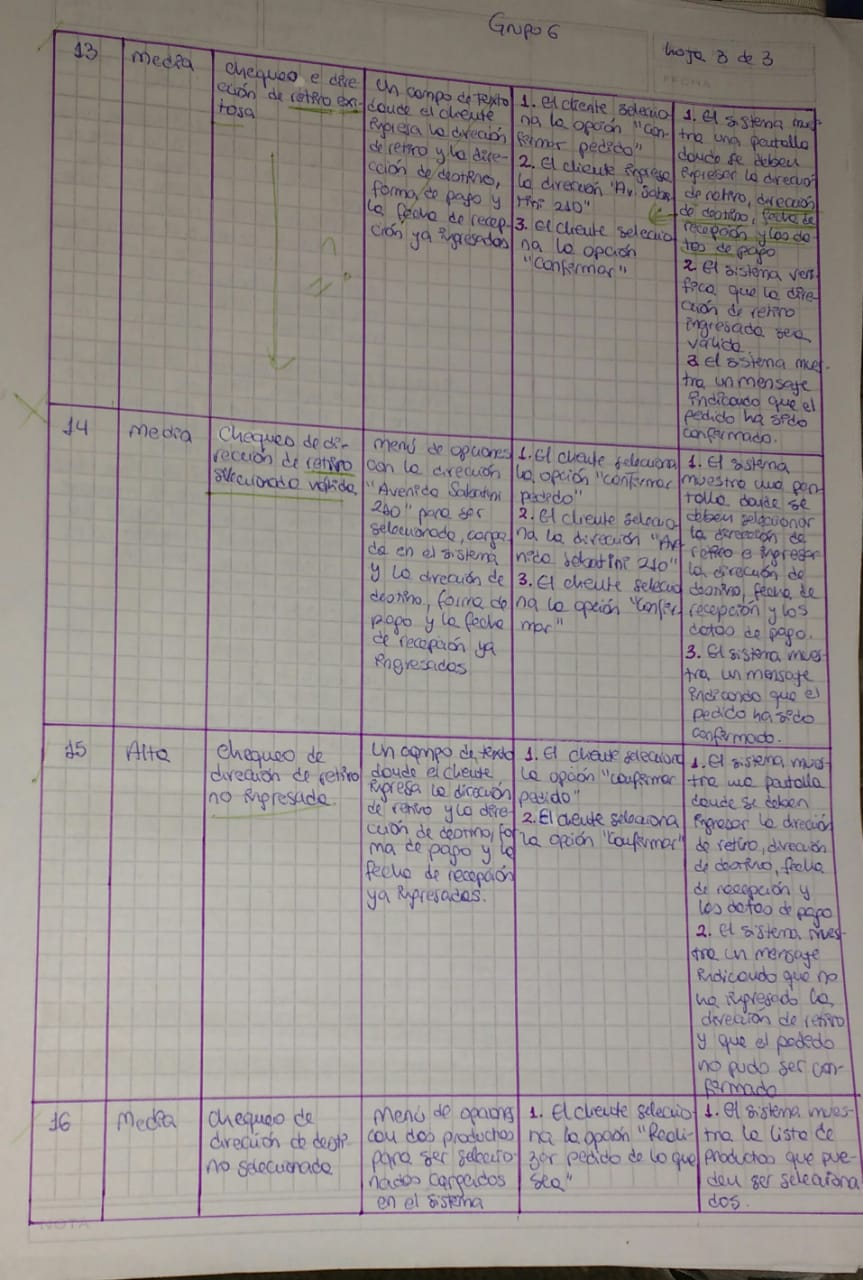 Grupo 6
hoja 3 de 3
FECHA
13
Media
chequeo e dire-
cción de retiro exi-
tosa
Un campo de texto
donde el cliente
ingresa la dirección
de retiro y la dire-
cción de destino,
forma de pago y
la fecha de recep-
ción ya ingresados
1. El cliente seleccio
na la opción "Con-
firmar pedido"
2. El cliente ingresa
la dirección "Av. Saba-
ttini 210"
3. El cliente seleccio
na la opción
"Confirmar"
1. El sistema mues-
tra una pantalla
donde se deben
ingresar la dirección
de retiro, dirección
de destino, fecha de
recepción y los da-
tos de pago
2. El sistema veri-
fica que la dire-
cción de retiro
ingresada sea
válida
3. El sistema mues-
tra un mensaje
indicando que el
pedido ha sido
confirmado.
14
Media
Chequeo de di-
rección de retiro
seleccionada válida.
menú de opciones
con la dirección
"Avenida Sabattini
210" para ser
seleccionada, carga
da en el sistema
y la dirección de
destino, forma de
pago y la fecha
de recepción ya
ingresados
1. El cliente selecciona
la opción "Confirmar
pedido"
2. El cliente seleccio
na la dirección "Ave
nida Sabattini 210"
3. El cliente seleccio
na la opción "Confir-
mar"
1. El sistema
muestra una pan-
talla donde se
deben seleccionar
la dirección de
retiro e ingresar
la dirección de
destino, fecha de
recepción y los
datos de pago.
3. El sistema mues-
tra un mensaje
indicando que el
pedido ha sido
confirmado.
15
Alta
Chequeo de
dirección de retiro
no ingresada.
Un campo de texto
donde el cliente
ingresa la dirección
de retiro y la dire-
cción de destino, for
ma de pago y la
fecha de recepción
ya ingresados.
1. El cliente selecciona
la opción "confirmar
pedido"
2. El cliente selecciona
la opción "Confirmar"
1. El sistema mues-
tra una pantalla
donde se deben
ingresar la dirección
de retiro, dirección
de destino, fecha
de recepción y
los datos de pago
2. El sistema mues-
tra un mensaje
indicando que no
ha ingresado la
dirección de retiro
y que el pedido
no pudo ser con-
firmado
16
Media
chequeo de
dirección de desti-
no seleccionada
Menú de opciones
con dos productos
para ser seleccio-
nados cargados
en el sistema
1. El cliente seleccio-
na la opción "Reali-
zar pedido de lo que
sea"
1. El sistema mues-
tra la lista de
productos que pue-
den ser selecciona
dos.
NOTA